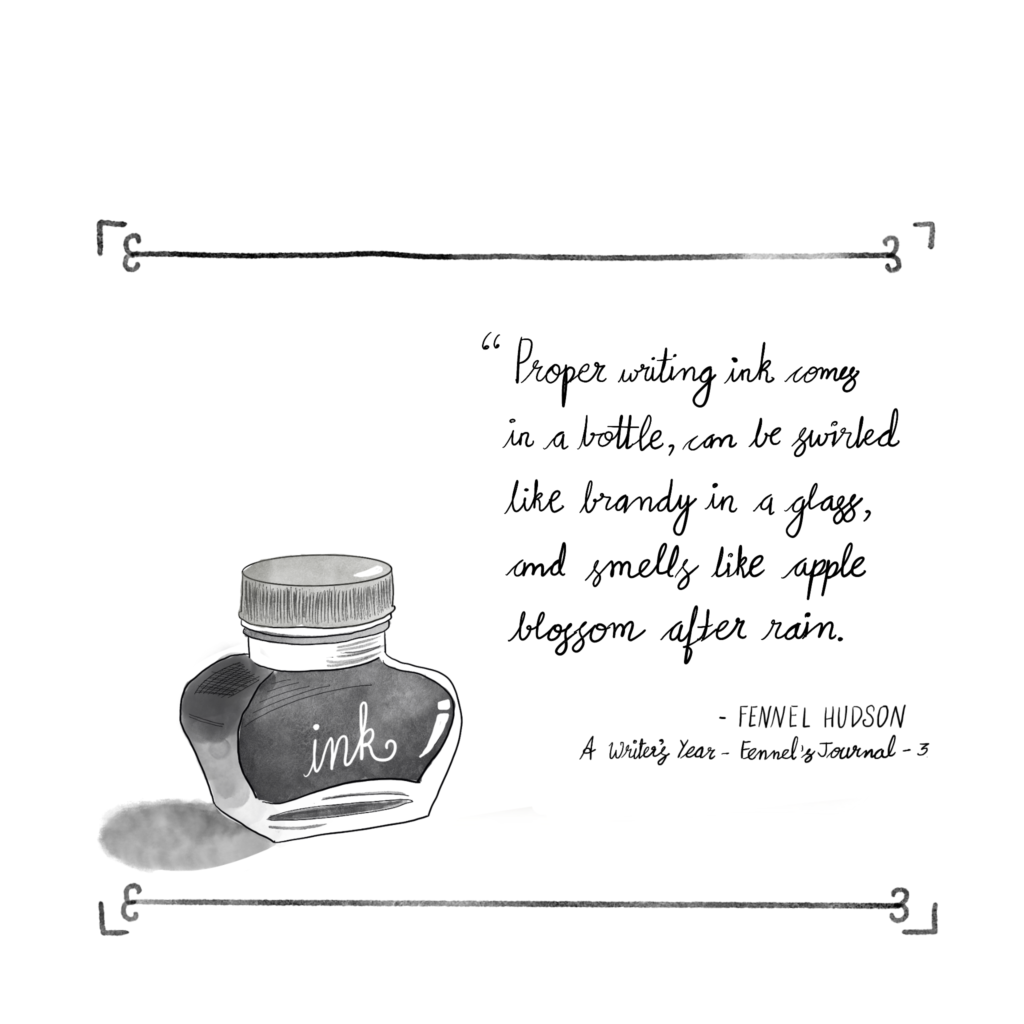 “ Proper writing ink comes
in a bottle, can be swirled
like brandy in a glass,
and smells like apple
blossom after rain.
- FENNEL HUDSON
A Writer's Year - Fennel's Journal - 3
ink